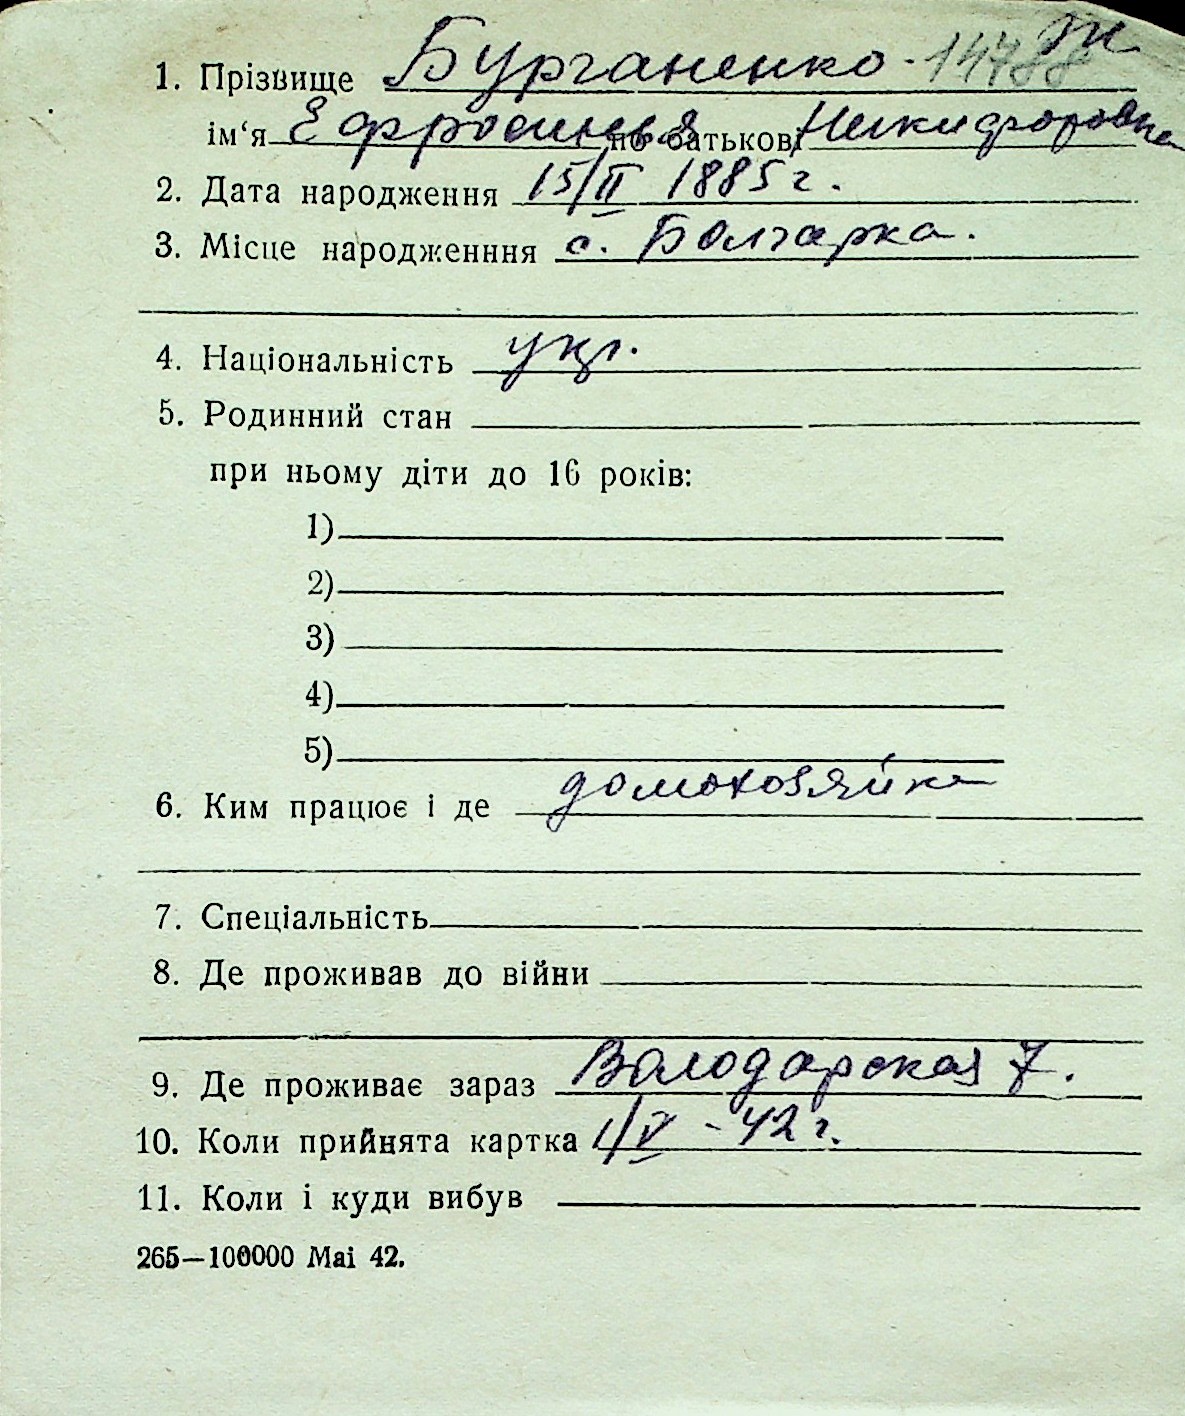 1. Прізвище Бурганенко - 14788
ім‘я Ефросинья по батькові Никифоровна
2. Дата народження 15/II 1885 г.
3. Місце народженння с. Болгарка.
4. Національність укр.
5. Родинний стан
при ньому діти до 16 років:
1)
2)
3)
4)
5)
6. Ким працює і де домохозяйка
7. Спеціальність
8. Де проживав до війни
9. Де проживає зараз Володарская 7.
10. Коли прийнята картка 1/V - 42 г.
11. Коли і куди вибув
265—100000 Маі 42.